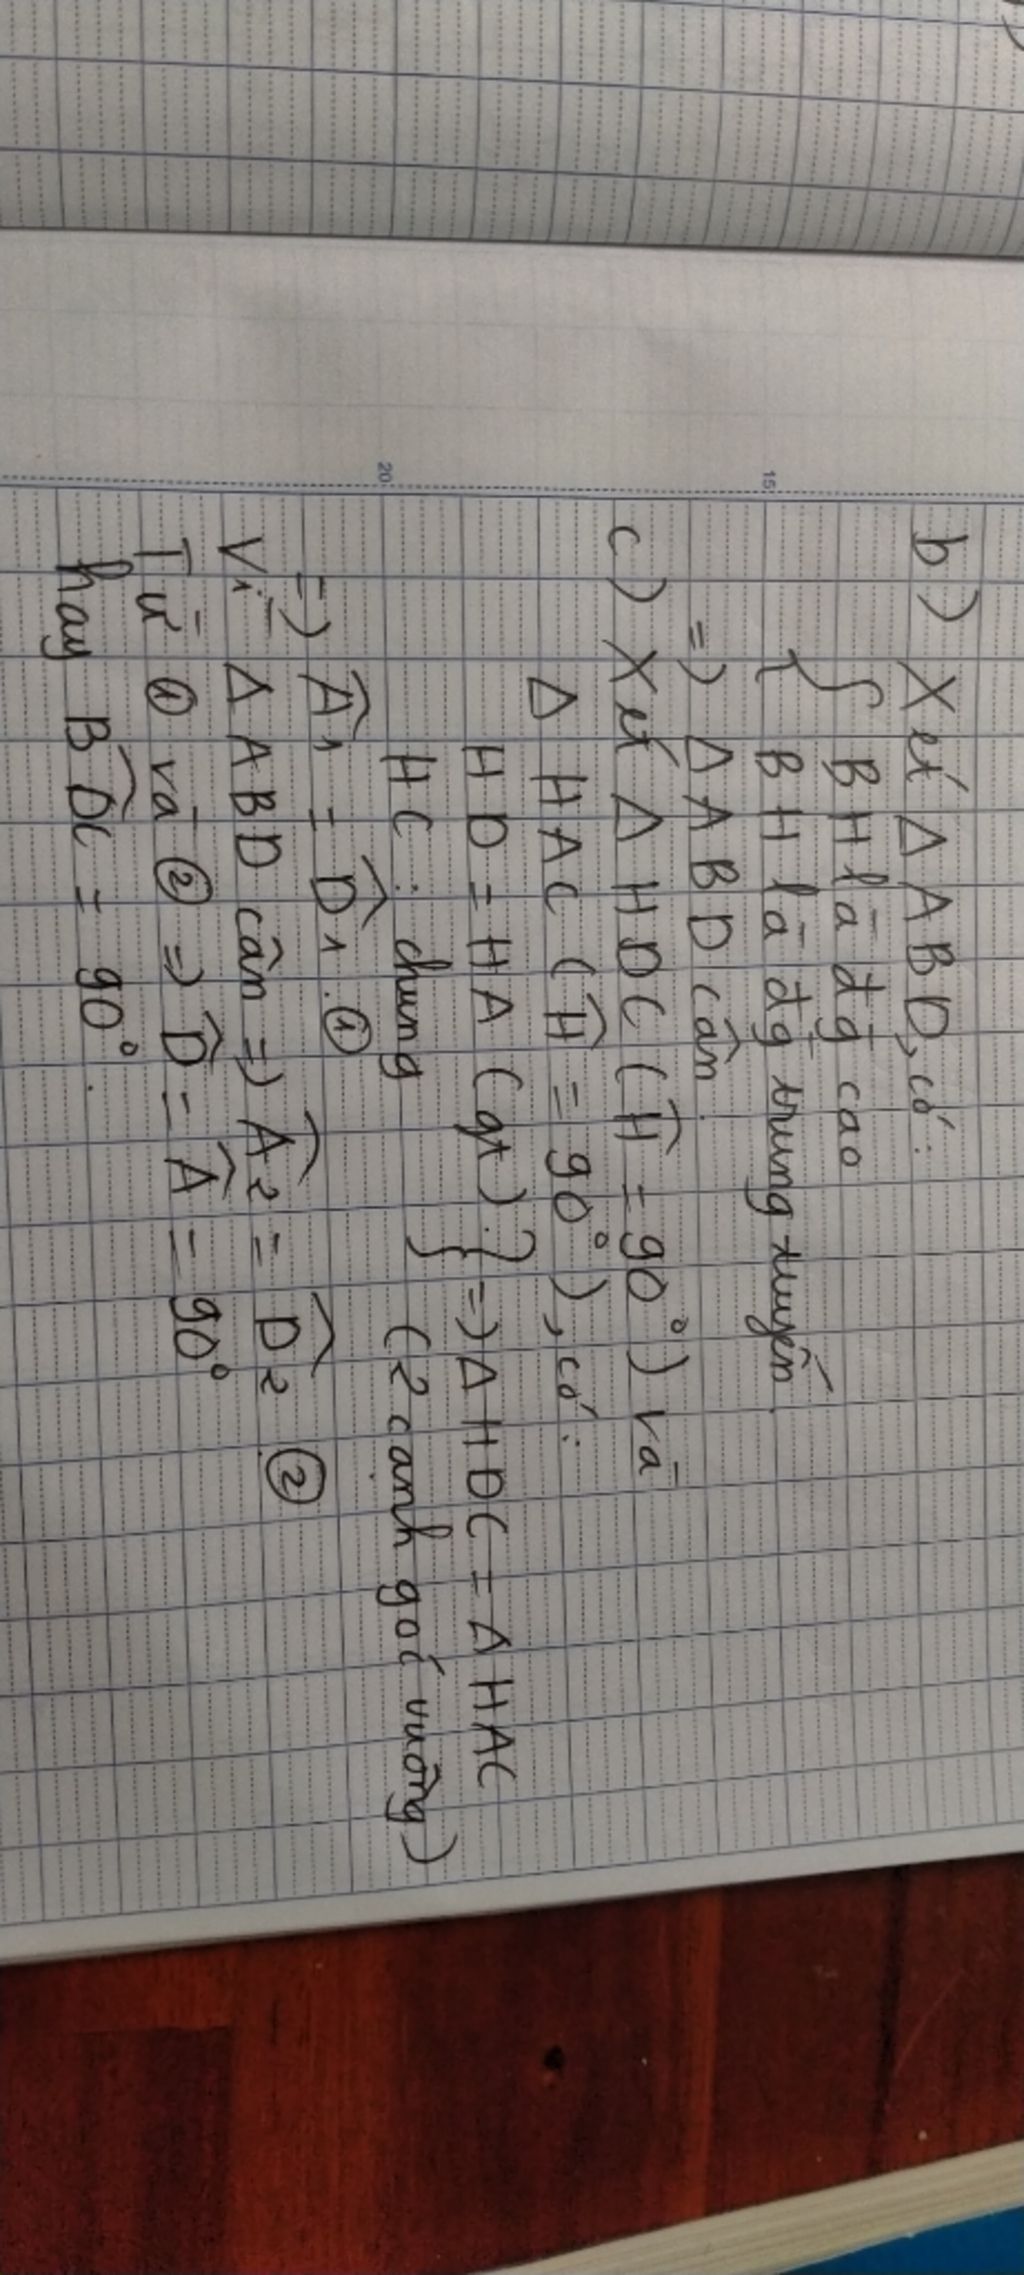 b) Xét Δ ABD, có:
{ BH là đg cao
BH là đg trung tuyến
=) Δ ABD cân.
15
c) Xét Δ HDC (Ĥ = 90°) và
Δ HAC (Ĥ = 90°), có:
HD = HA (gt). } =) Δ HDC = Δ HAC
HC : chung (2 cạnh góc vuông)
20
=) Â1 = D̂1. ①
Vì Δ ABD cân =) Â2 = D̂2 ②
Từ ① và ② =) D̂ = Â = 90°
hay BD̂C = 90°.